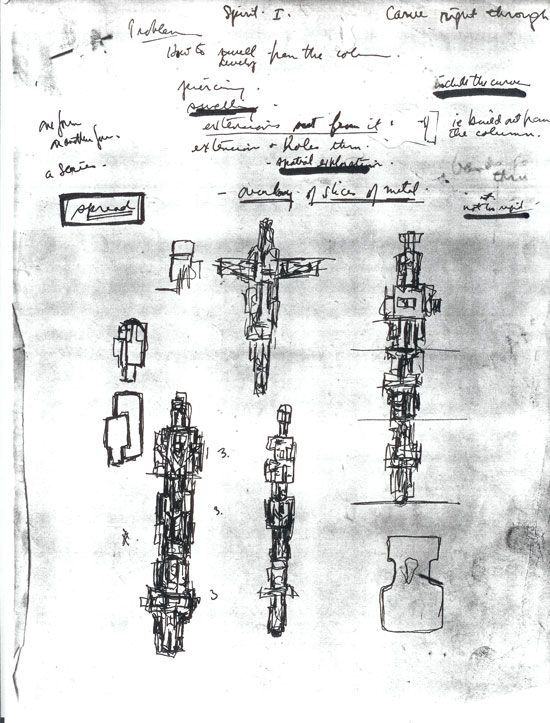 Spirit. I.
Carve right through
Problem
How to swell from the column.
develop
piercing.
include the curve
swell
one form
in another form.
extensions out from it.
ie build out from
the column.
extension & holes then.
a series.
- spatial exploration.
thru
spread
- overlay of slices of metal.
not too rigid.
3.
3.
3